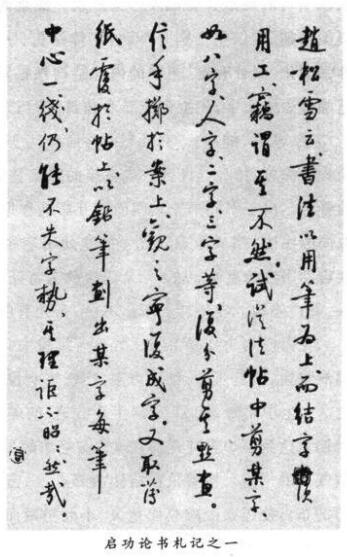 趙松雪云、書法以用筆為上、而結字亦須
用工、竊謂其不然。試從法帖中剪某字、
如八字、人字、二字、三字等、復分剪其點畫。
信手擲於案上、觀之寧復成字。又取薄
紙覆於帖上、以鉛筆劃出某字每筆
中心一綫、仍能不失字勢、其理詎不昭昭然哉。
启功论书札记之一